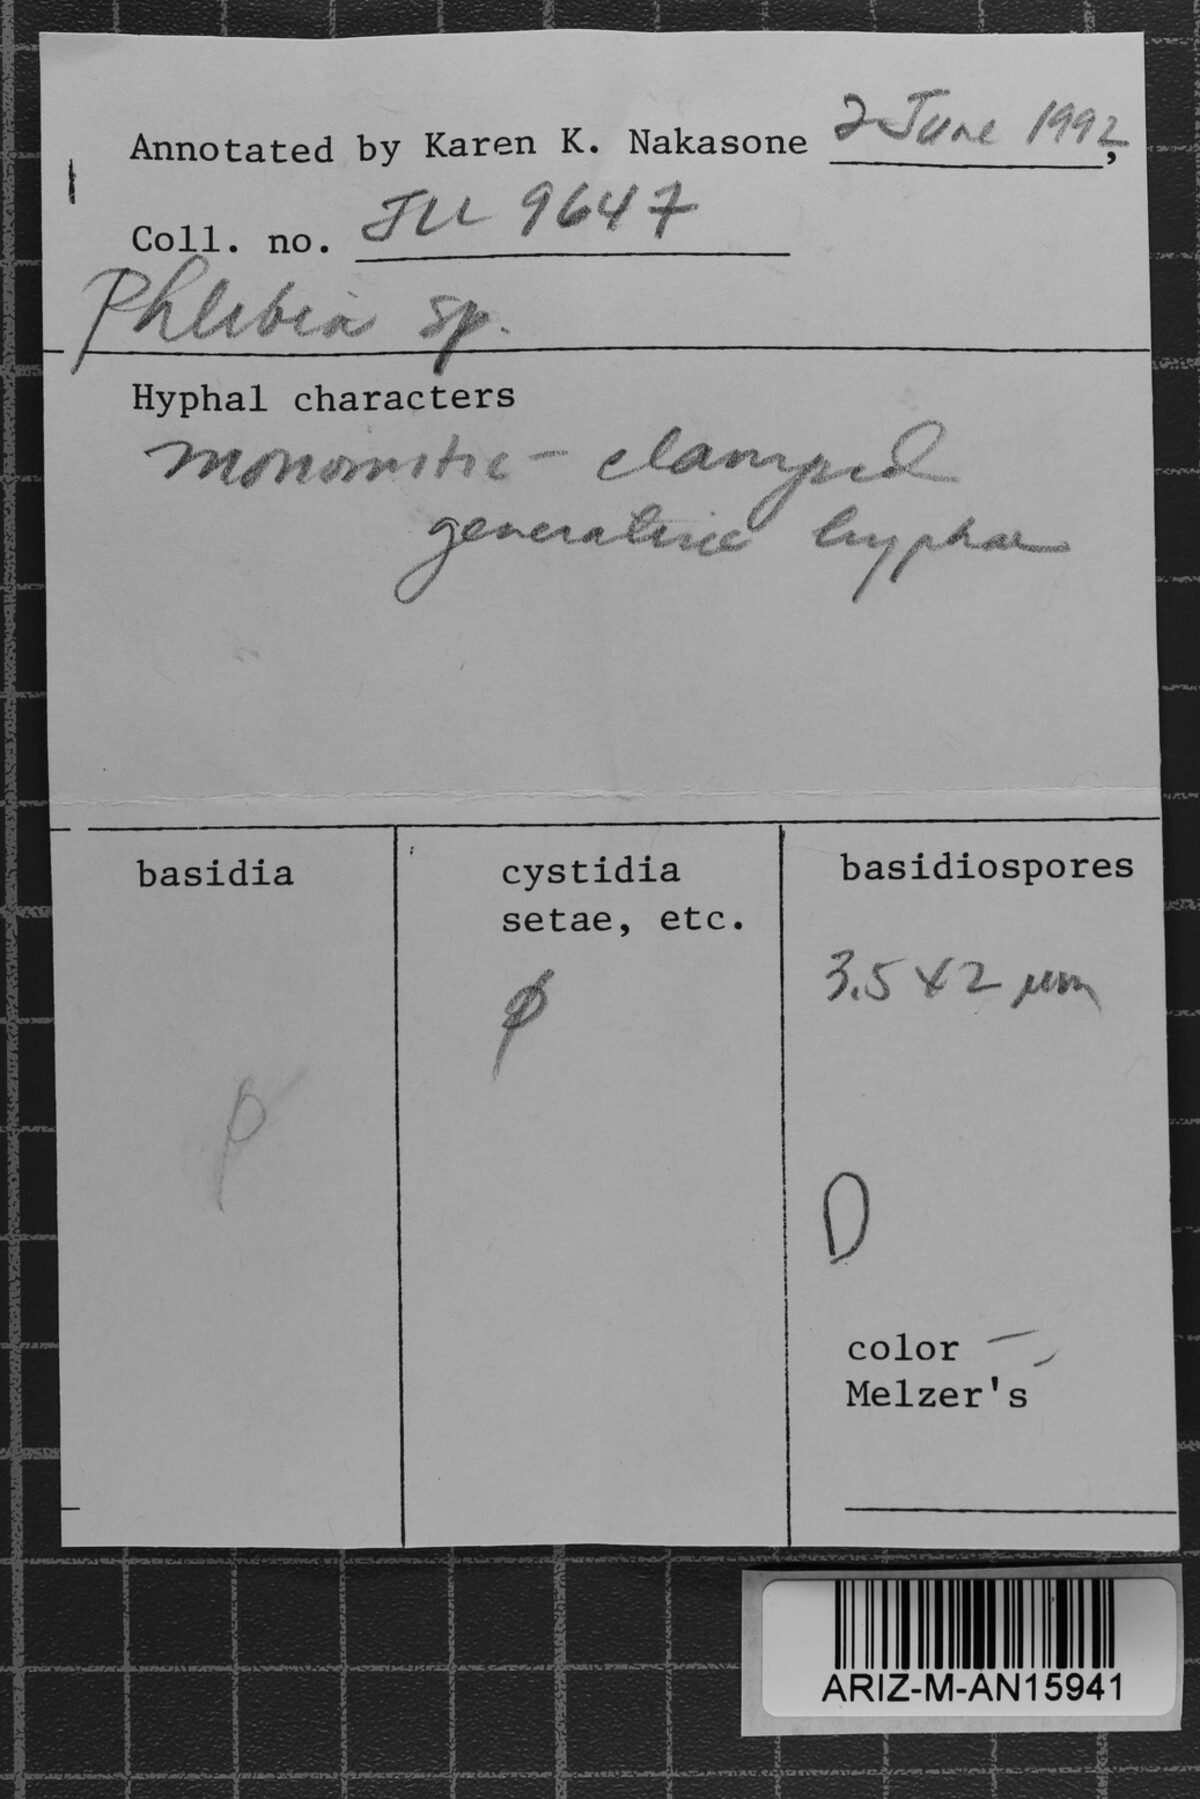 Annotated by Karen K. Nakasone 2 June 1992,
Coll. no. JLL 9647
Phlebia sp.
Hyphal characters
monomitic - clamped
generative hyphae
basidia
ø
cystidia
setae, etc.
ø
basidiospores
3.5 x 2 µm
color —
Melzer's —
ARIZ-M-AN15941